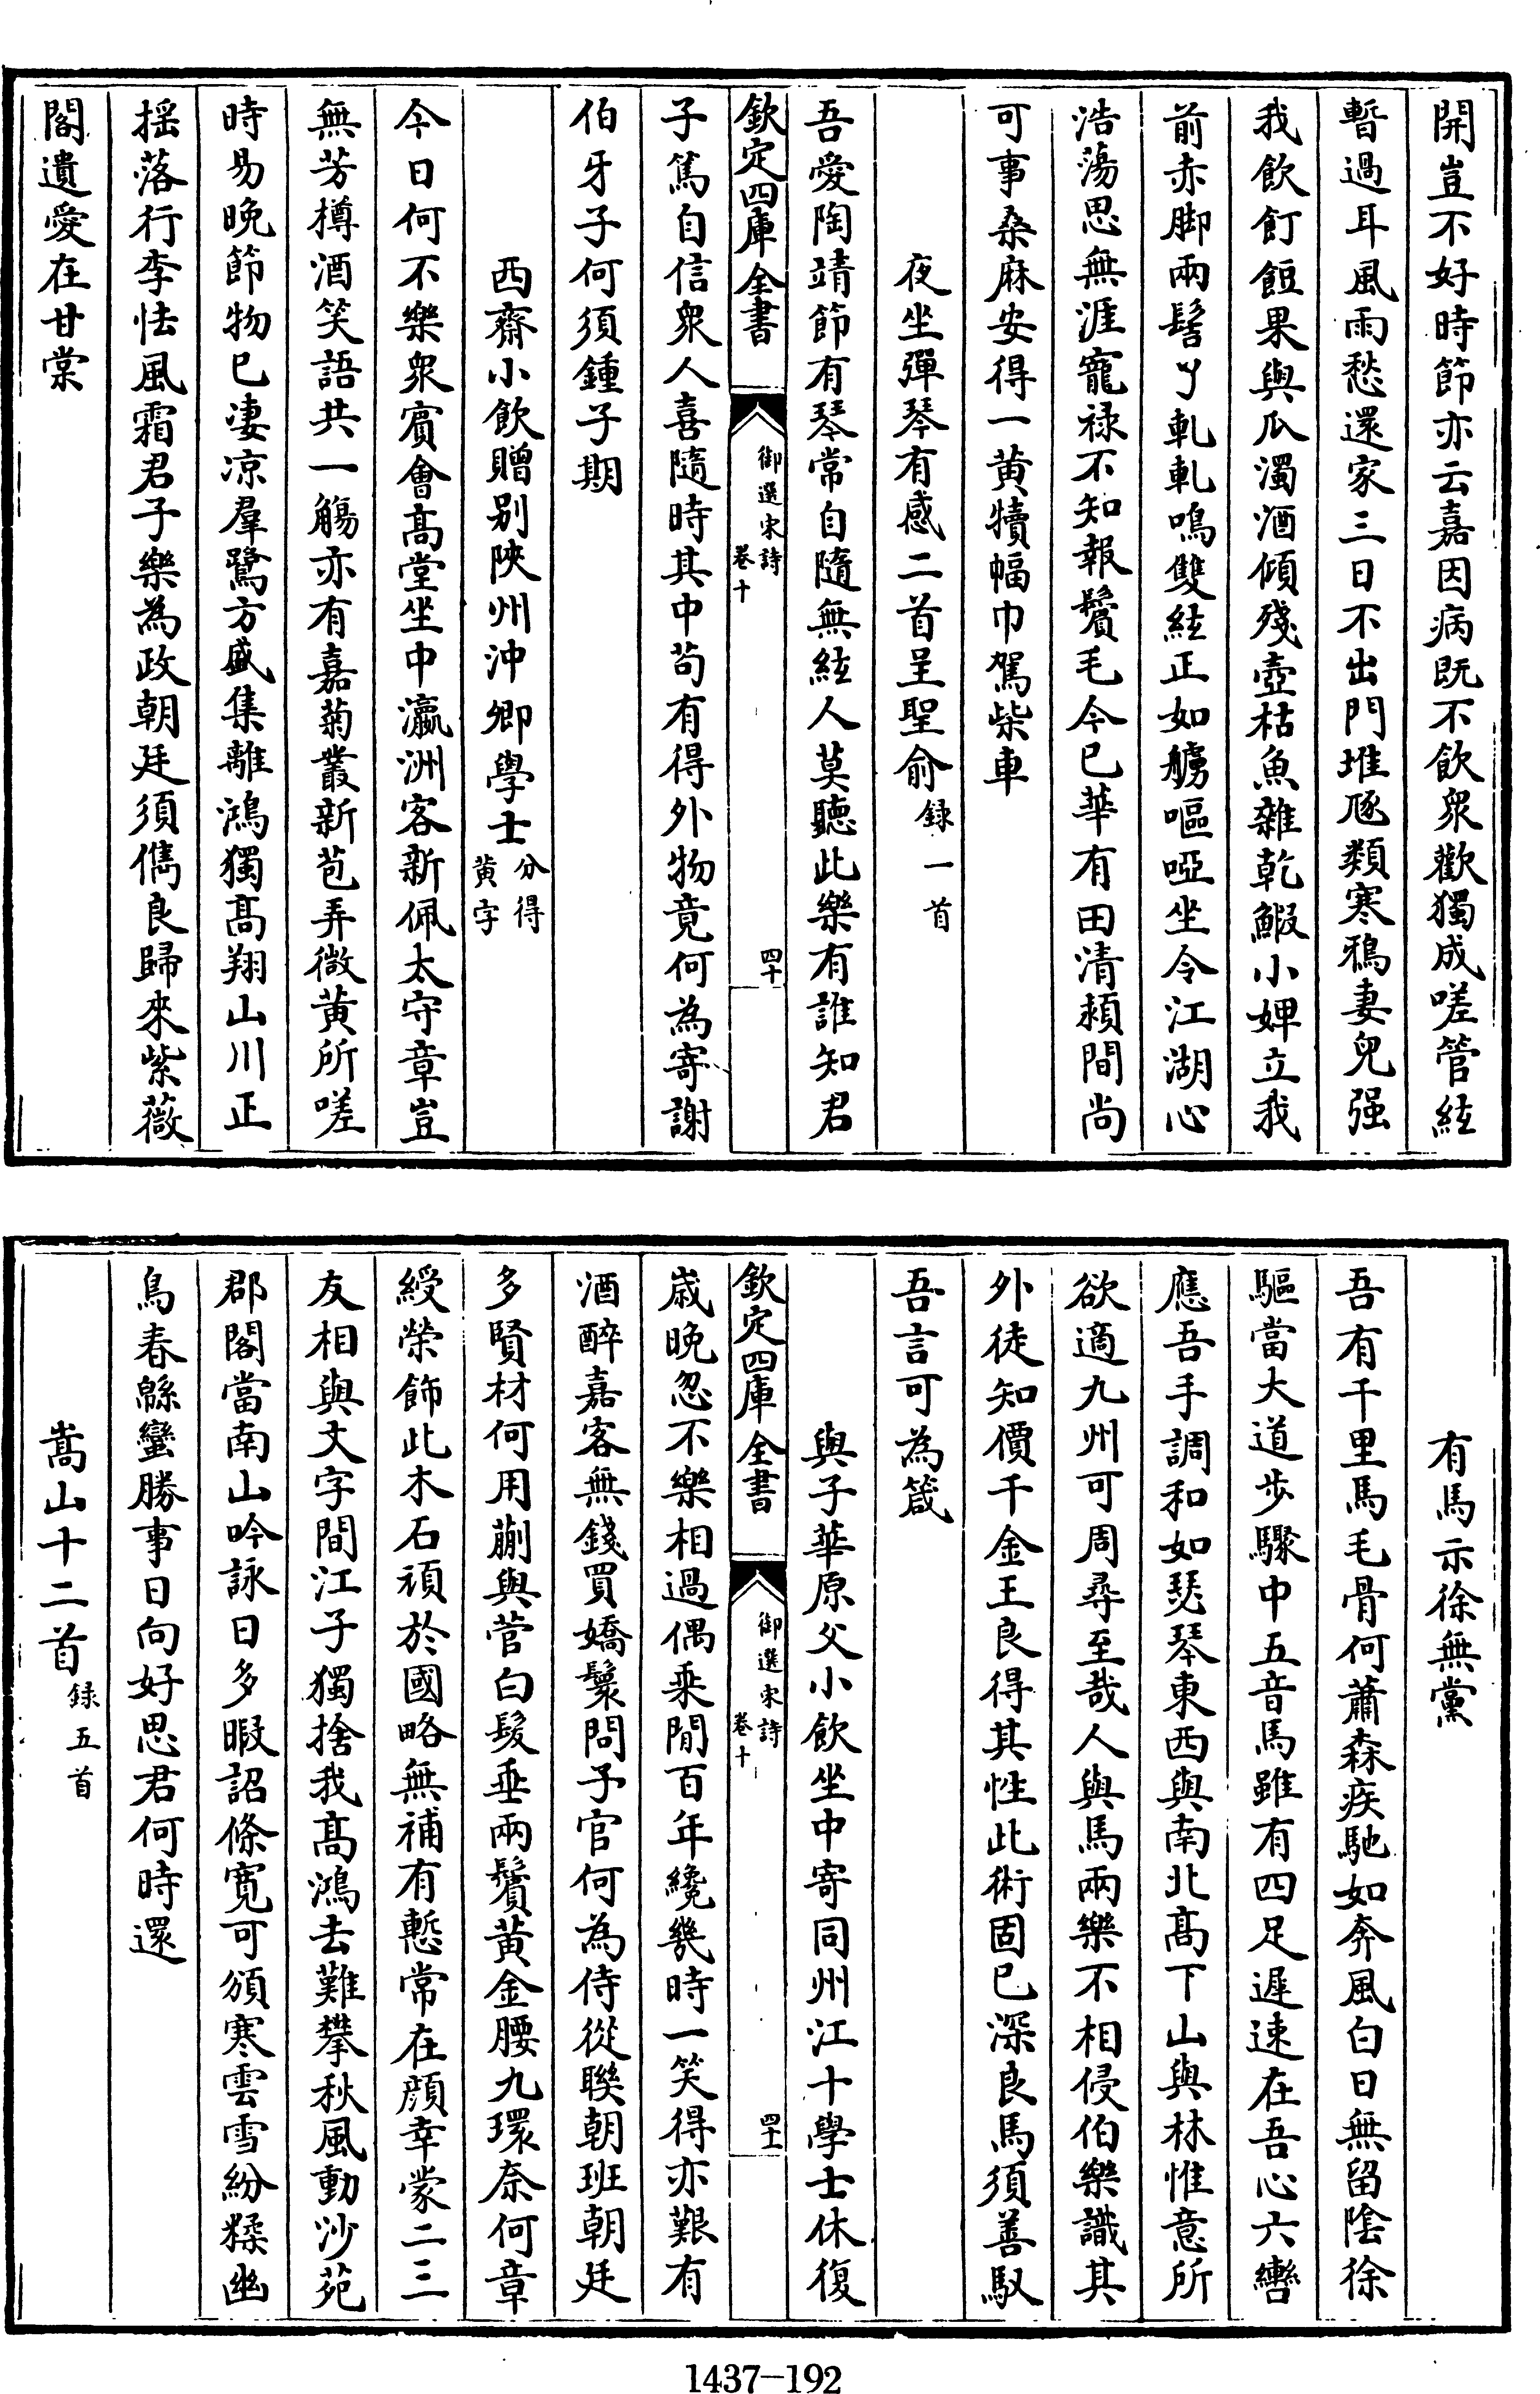 開豈不好時節亦云嘉因病既不飲衆歡獨成嗟管絃
暫過耳風雨愁還家三日不出門堆豗類寒鴉妻兒强
我飲飣餖果與瓜濁酒傾殘壺枯魚雜乾鰕小婢立我
前赤脚兩髻丫軋軋鳴雙絃正如艣嘔啞坐令江湖心
浩蕩思無涯寵祿不知報鬢毛今已華有田清潁間尚
可事桑麻安得一黄犢幅巾駕柴車
夜坐彈琴有感二首呈聖俞録一首
吾愛陶靖節有琴常自隨無絃人莫聽此樂有誰知君
欽定四庫全書
御選宋詩
卷十
四十
子篤自信衆人喜隨時其中茍有得外物竟何為寄謝
伯牙子何須鍾子期
西齋小飲贈别陜州沖卿學士分得黄字
今日何不樂衆賓會髙堂坐中瀛洲客新佩太守章豈
無芳樽酒笑語共一觴亦有嘉菊叢新苞弄微黄所嗟
時易晚節物已凄凉羣鷺方盛集離鴻獨髙翔山川正
揺落行李怯風霜君子樂為政朝廷須儁良歸來紫薇
閣遺愛在甘棠
有馬示徐無黨
吾有千里馬毛骨何蕭森疾馳如奔風白日無留陰徐
驅當大道步驟中五音馬雖有四足遲速在吾心六轡
應吾手調和如瑟琴東西與南北髙下山與林惟意所
欲適九州可周尋至哉人與馬兩樂不相侵伯樂識其
外徒知價千金王良得其性此術固已深良馬須善馭
吾言可為箴
與子華原父小飲坐中寄同州江十學士休復
欽定四庫全書
御選宋詩
卷十
四十一
歳晚忽不樂相過偶乗閒百年纔幾時一笑得亦艱有
酒醉嘉客無錢買嬌鬟問予官何為侍從聨朝班朝廷
多賢材何用蒯與菅白髮垂兩鬢黄金腰九環奈何章
綬榮飾此木石頑於國略無補有慙常在顔幸蒙二三
友相與文字間江子獨捨我髙鴻去難攀秋風動沙苑
郡閣當南山吟詠日多暇詔條寛可頒寒雲雪紛糅幽
鳥春緜蠻勝事日向好思君何時還
嵩山十二首録五首
1437-192